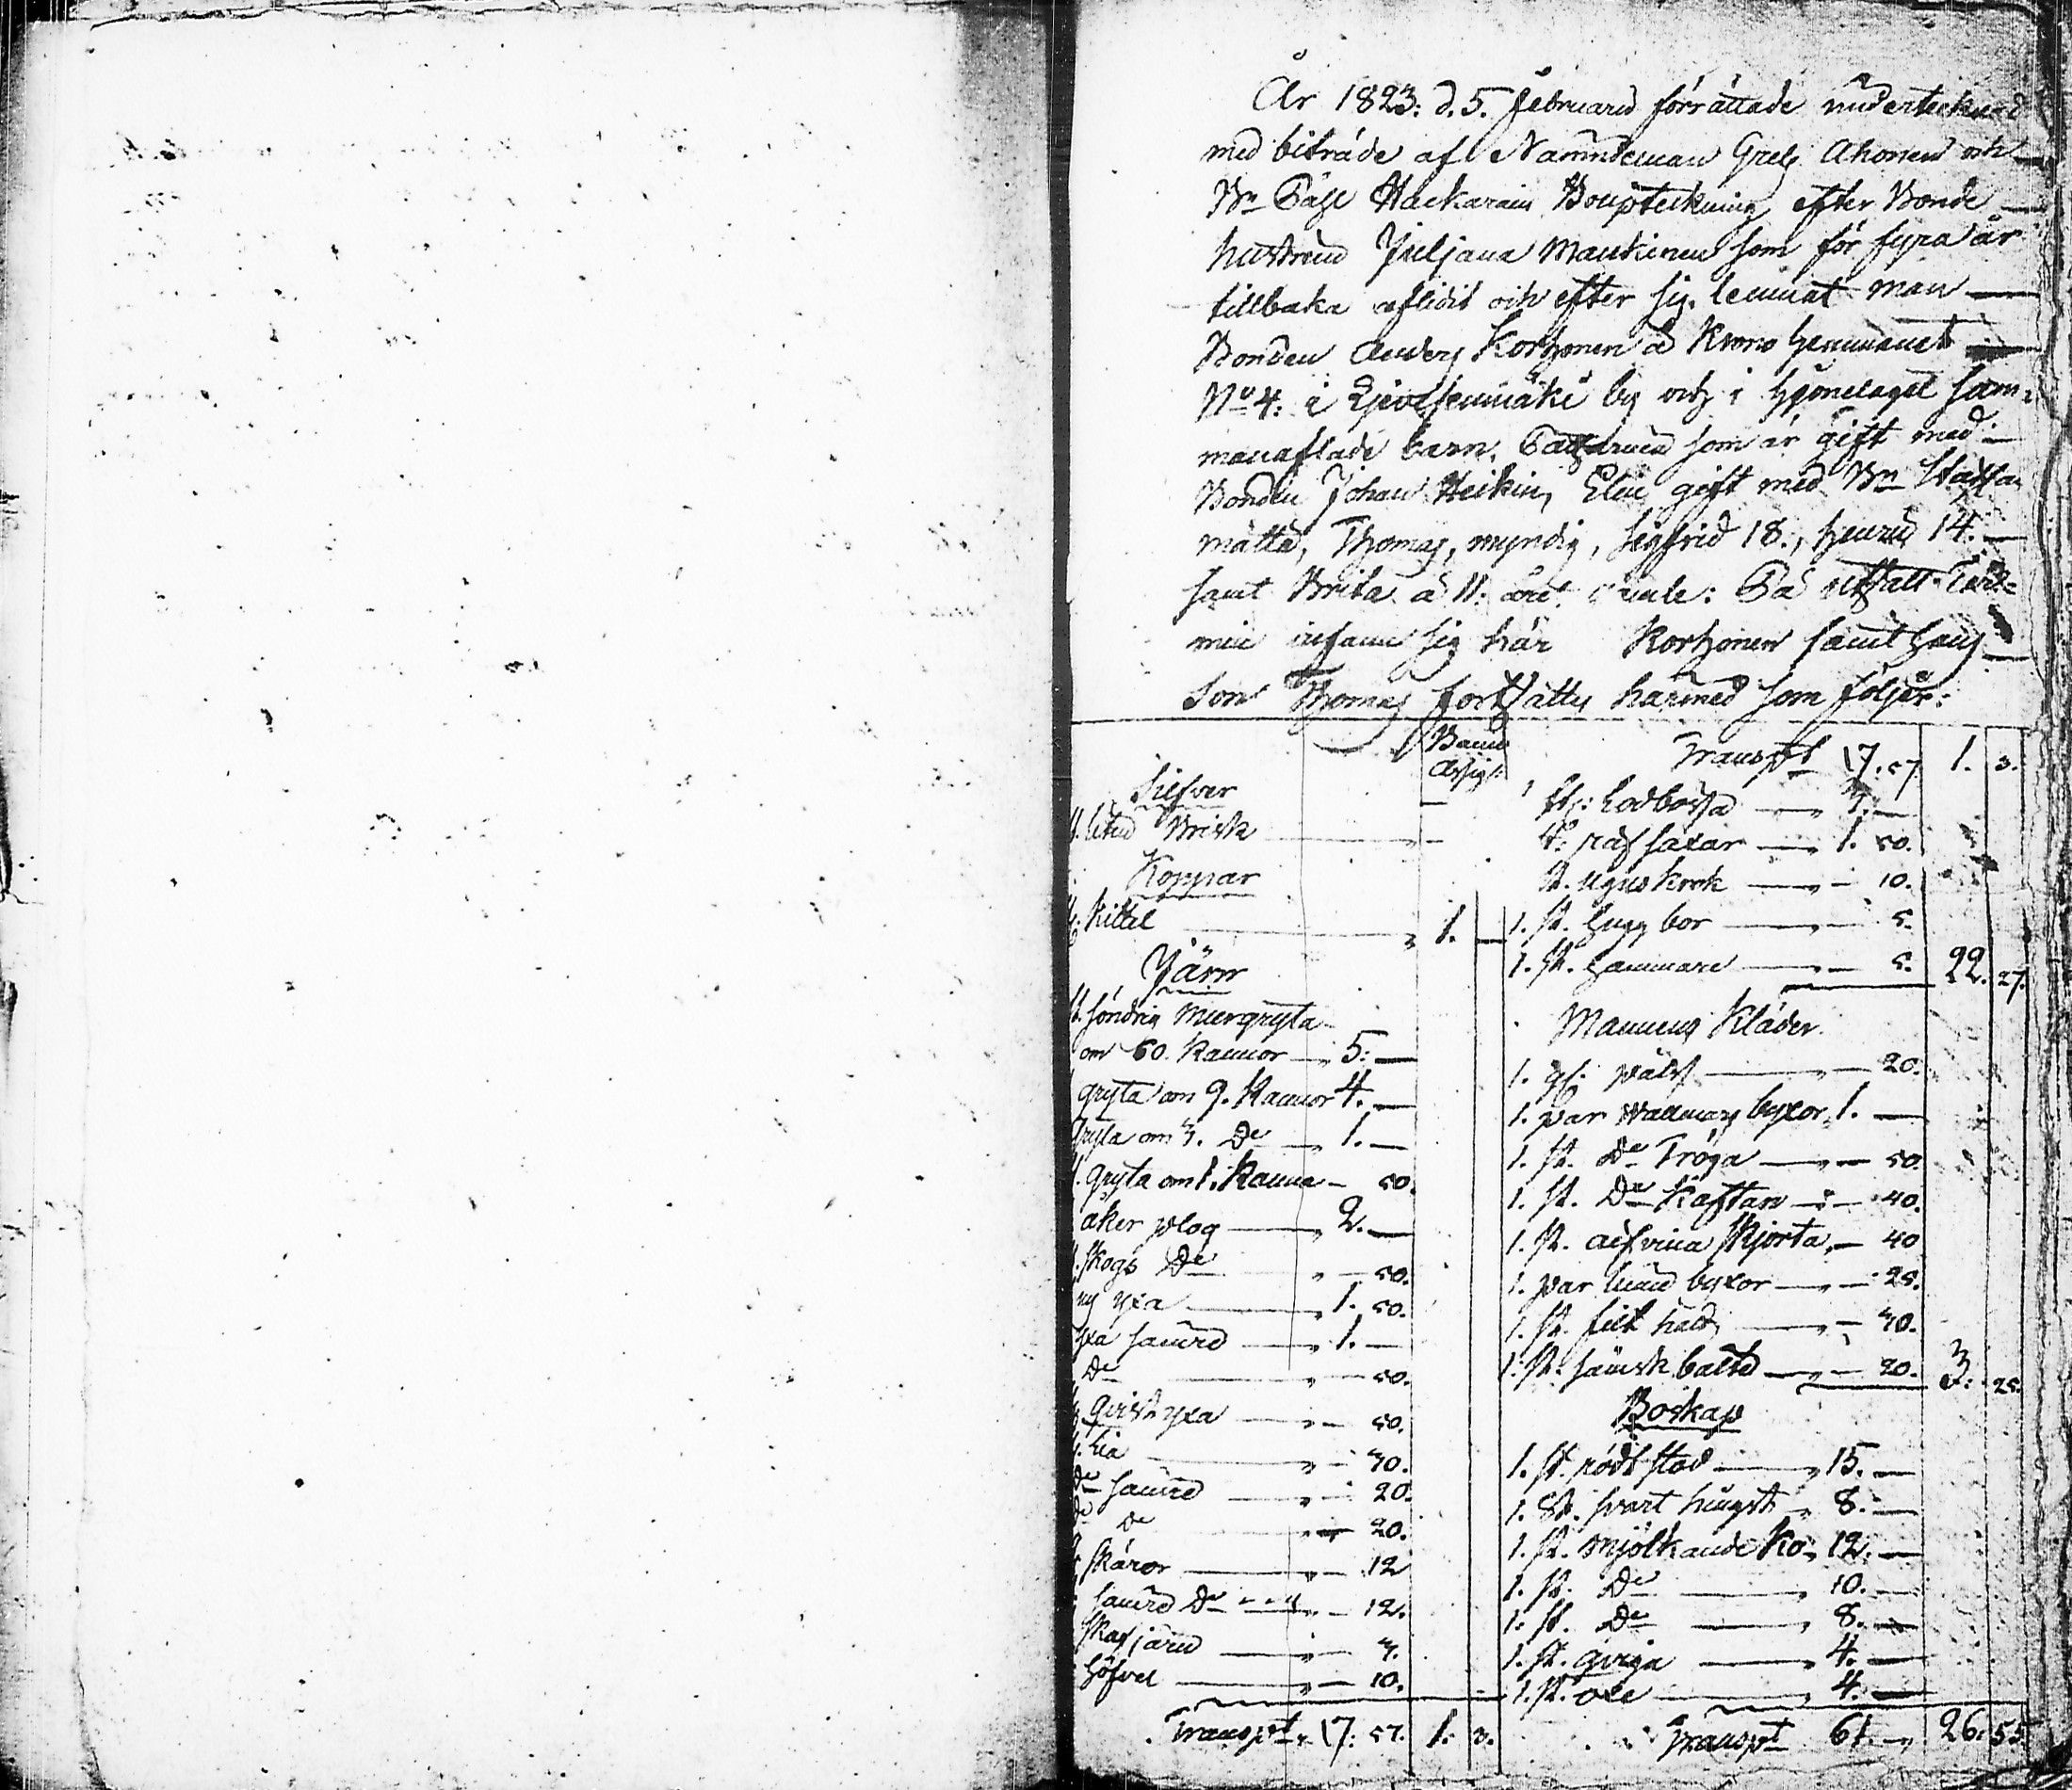 År 1823: d. 5. Februarii förrättade undertecknad
med biträde af Nämndeman Grels Ahonen och
Bn Påhl Hackarain Bouptekning efter Bonde
hustrun Juljana Mankinen som för fyra år
tillbaka aflidit och efter sig lemnat man
Bonden Anders Korhonen å Krono Hemmanet
No 4. i by och i Hjonelaget sam-
manaflade barn, Catharina som är gift med
Bonden Johan Heikin, Elin gift med Bn Staffan
Mätta, Thomas, myndig, Sigfrid 18., Henric 14.
samt Brita à 11. åre. På utsatt Ter-
min infann sig här Korhonen samt Hans
Son Thomas fortsattes härmed som följer:
Banco
Assig:
Silfver
1. liten Brisk
Koppar
Kittel 1. —
Järn
söndrig Murgryta
om 60. Kannor 5: —
gryta om 9. Kannor 4. —
gryta om 3. Do 1. —
1. gryta om 1. Kanna 50.
åker plog 2. —
1. skogs Do 50.
ny yxa 1. 50.
yxa sämre 1. —
Do 50.
qvist yxa 50.
lia 30.
Do sämre 20.
Do Do 20.
Skäror 12
sämre Do 12.
Skafjärn 3.
Höfvel 10.
Transpt 17: 57. 1: 3.
Transpt 17. 57 1. 3.
1 st: Lodbössa 3. —
st. räfsaxar 1. 50.
st. ugnskrok 10.
1. st. Hugg bor 5.
1. st. Hammare 5. 22. 27.
Mannens Kläder
1. gl. päls 20.
1. par Wallmans byxor 1. —
1. st. Do Tröja 50
1. st. Do Kaftan 40.
1. st. skjorta 40
1. par byxor 25.
1. st. filt hatt 30.
1. st. sämsk bälte 20. 3: 25.
Boskap
1. st. rödt stod 15. —
1. St. svart hingst 8. —
1. st. Mjölkande Ko 12. —
1. st. Do 10. —
1. st. Do 8. —
1. st. qviga 4. —
1. st. oxe 4. —
Transpt 61. 26. 55